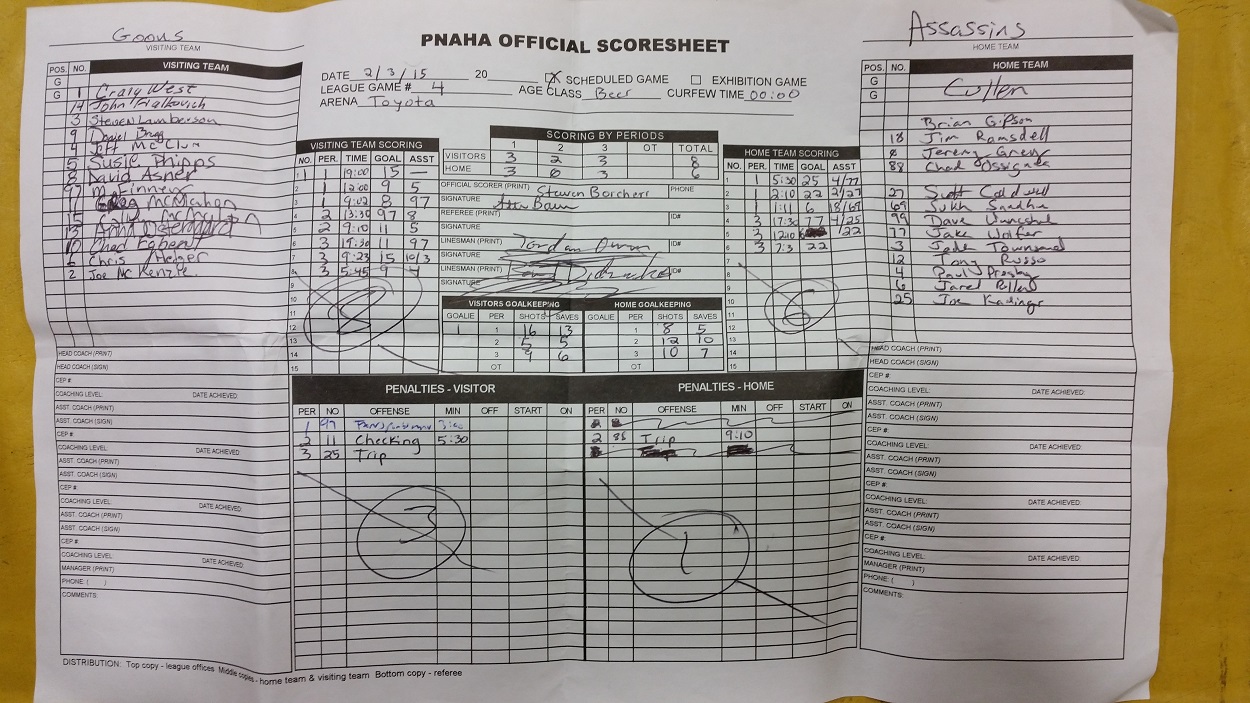 Goons
VISITING TEAM
PNAHA OFFICIAL SCORESHEET
Assassins
HOME TEAM
DATE 2/3/15 20 SCHEDULED GAME EXHIBITION GAME
LEAGUE GAME # 4 AGE CLASS Beer CURFEW TIME 00:00
ARENA Toyota
POS. NO. VISITING TEAM
G 1 Craig West
G John Fialkovich
3 Steven Lamberson
9 Daniel Bragg
4 Jeff McClun
5 Susie Phipps
8 David Asher
97 M. Finney
McMahon
10 Chad Egbert
6 Chris Metger
2 Joe McKenzie
HEAD COACH (PRINT)
HEAD COACH (SIGN)
CEP #
COACHING LEVEL: DATE ACHIEVED:
ASST. COACH (PRINT)
ASST. COACH (SIGN)
CEP #
COACHING LEVEL: DATE ACHIEVED:
ASST. COACH (PRINT)
ASST. COACH (SIGN)
CEP #
COACHING LEVEL: DATE ACHIEVED:
ASST. COACH (PRINT)
ASST. COACH (SIGN)
CEP #
COACHING LEVEL: DATE ACHIEVED:
MANAGER (PRINT)
PHONE: ( )
COMMENTS:
VISITING TEAM SCORING
NO. PER. TIME GOAL ASST
1 1 19:00 15 —
2 1 12:00 9 5
3 1 9:02 8 97
4 2 13:30 97 8
5 2 9:10 11 5
6 3 19:30 11 97
7 3 9:23 15 10/3
8 3 5:45 9 4
9
10
11
12
13
14
15
8
SCORING BY PERIODS
1 2 3 OT TOTAL
VISITORS 3 2 3 8
HOME 3 0 3 6
OFFICIAL SCORER (PRINT) Steven Borcherr PHONE
SIGNATURE
REFEREE (PRINT) ID#
SIGNATURE
LINESMAN (PRINT) Jordan ID#
SIGNATURE
LINESMAN (PRINT) ID#
SIGNATURE
VISITORS GOALKEEPING
GOALIE PER SHOTS SAVES
1 1 16 13
2 5 5
3 9 6
OT
HOME GOALKEEPING
GOALIE PER SHOTS SAVES
1 8 5
2 12 10
3 10 7
OT
HOME TEAM SCORING
NO. PER. TIME GOAL ASST
1 1 5:30 25 4/77
2 1 2:10 22 2/27
3 1 1:11 6 18/69
4 3 17:30 77 4/25
5 3 12:10 /22
6 3 7:3 22
7
8
9
10
11
12
13
14
15
6
POS. NO. HOME TEAM
G
G Cullen
Brian Gipson
18 Jim Ramsdell
8 Jeremy Grew
88 Chad
27 Scott Caldwell
69 Sukh Sandha
99 Dave
77 Jake
3 Jaden Townsend
12 Tony Russo
4 Paul
6 Jared
25 Joe Kadinger
HEAD COACH (PRINT)
HEAD COACH (SIGN)
CEP #
COACHING LEVEL: DATE ACHIEVED:
ASST. COACH (PRINT)
ASST. COACH (SIGN)
CEP #
COACHING LEVEL:
ASST. COACH (PRINT) DATE ACHIEVED:
ASST. COACH (SIGN)
CEP #
COACHING LEVEL: DATE ACHIEVED:
ASST. COACH (PRINT)
ASST. COACH (SIGN)
CEP #
COACHING LEVEL: DATE ACHIEVED:
MANAGER (PRINT)
PHONE: ( )
COMMENTS:
PENALTIES - VISITOR
PER NO OFFENSE MIN OFF START ON
1 97
2 11 Checking 5:30
3 25 Trip
3
PENALTIES - HOME
PER NO OFFENSE MIN OFF START ON
2 88 Trip 9:10
1
DISTRIBUTION: Top copy - league offices Middle copies - home team & visiting team Bottom copy - referee